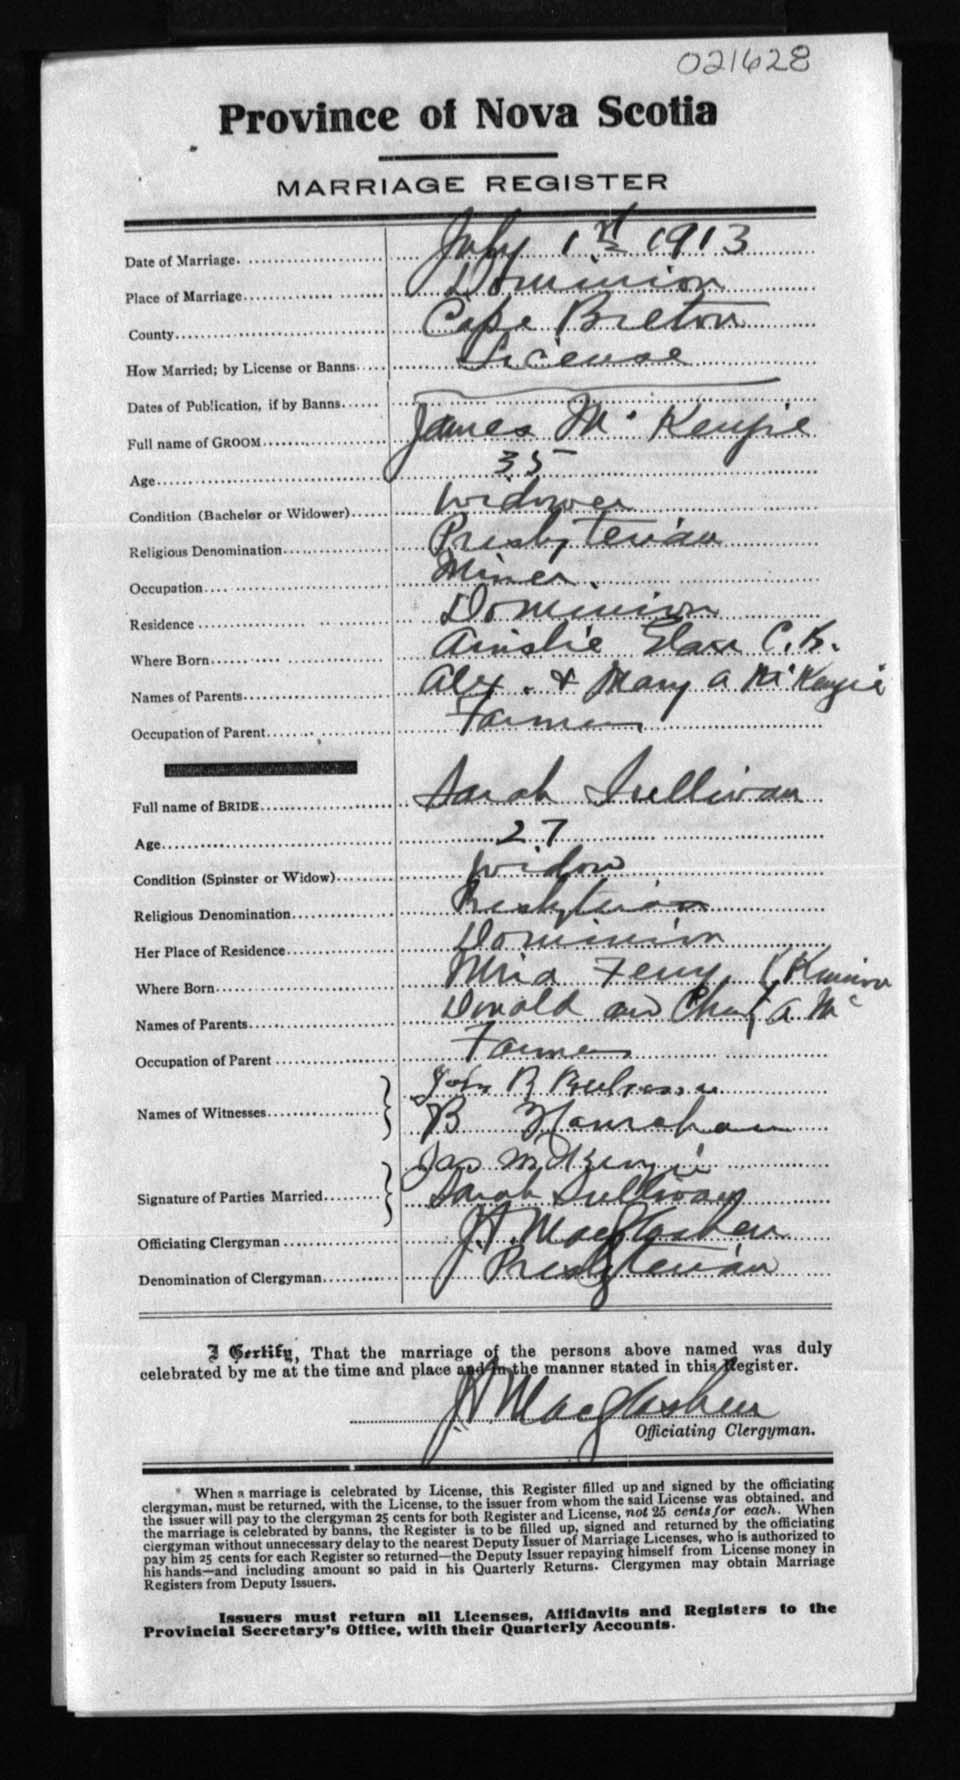 021628
Province of Nova Scotia
MARRIAGE REGISTER
Date of Marriage. July 1st 1913
Place of Marriage Dominion
County Cape Breton
How Married; by License or Banns License
Dates of Publication, if by Banns
Full name of GROOM James Mc Kenzie
Age 35
Condition (Bachelor or Widower) widower
Religious Denomination Presbyterian
Occupation Miner.
Residence Dominion
Where Born Ainslie Glen C. B.
Names of Parents Alex. & Mary A McKenzie
Occupation of Parent Farmer
Full name of BRIDE Sarah Sullivan
Age 27
Condition (Spinster or Widow) widow
Religious Denomination Presbyterian
Her Place of Residence Dominion
Where Born Mira Ferry
Names of Parents Donald and A Mc
Occupation of Parent Farmer
Names of Witnesses John R
B Hanrahan
Signature of Parties Married Jas McKenzie
Sarah Sullivan
Officiating Clergyman J.A. MacGlashen
Denomination of Clergyman Presbyterian
I Certify, That the marriage of the persons above named was duly
celebrated by me at the time and place and in the manner stated in this Register.
J A MacGlashen
Officiating Clergyman.
When a marriage is celebrated by License, this Register filled up and signed by the officiating
clergyman, must be returned, with the License, to the issuer from whom the said License was obtained, and
the issuer will pay to the clergyman 25 cents for both Register and License, not 25 cents for each. When
the marriage is celebrated by banns, the Register is to be filled up, signed and returned by the officiating
clergyman without unnecessary delay to the nearest Deputy Issuer of Marriage Licenses, who is authorized to
pay him 25 cents for each Register so returned—the Deputy Issuer repaying himself from License money in
his hands—and including amount so paid in his Quarterly Returns. Clergymen may obtain Marriage
Registers from Deputy Issuers.
Issuers must return all Licenses, Affidavits and Registers to the
Provincial Secretary's Office, with their Quarterly Accounts.